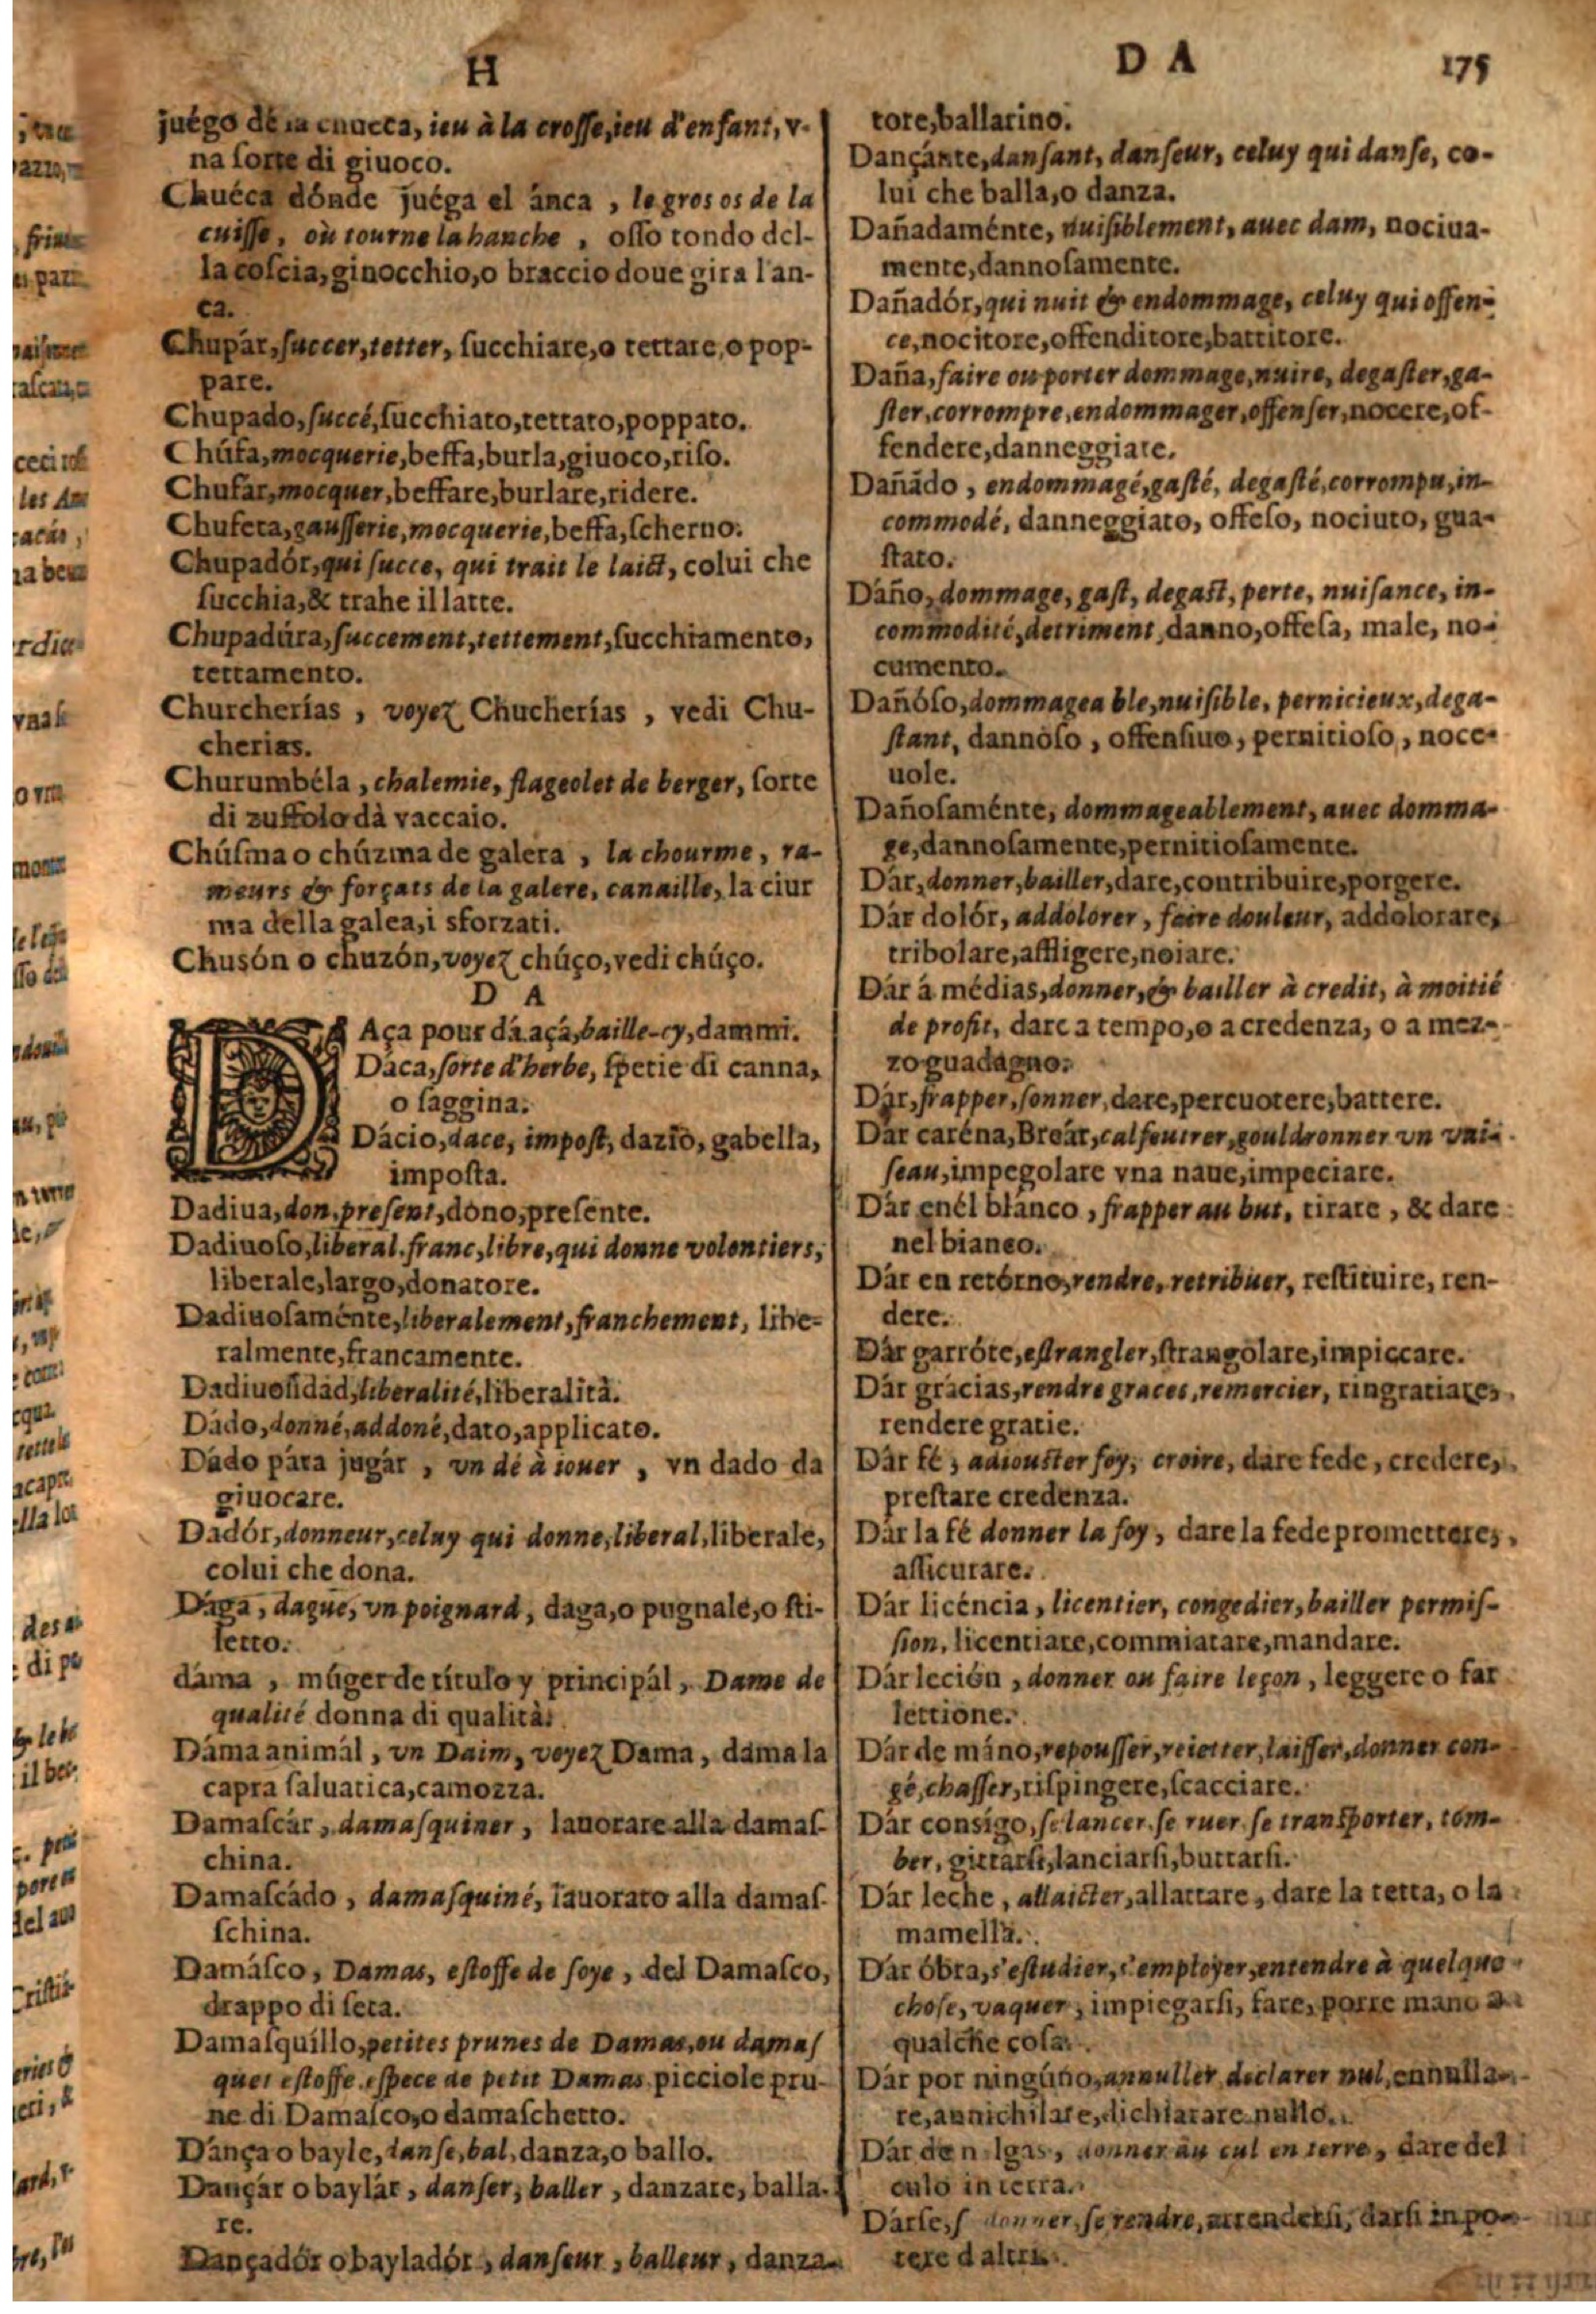 H
juégo de la chueca, ieu à la crosse, ieu d'enfant, v-
na sorte di giuoco.
Chuéca dónde juéga el ánca, le gros os de la
cuisse, où tourne la hanche, osso tondo del-
la coscia, ginocchio, o braccio doue gira l'an-
ca.
Chupár, succer, tetter, succhiare, o tettare, o pop-
pare.
Chupado, succé, succhiato, tettato, poppato.
Chúfa, mocquerie, beffa, burla, giuoco, riso.
Chufar, mocquer, beffare, burlare, ridere.
Chufeta, gausserie, mocquerie, beffa, scherno.
Chupadór, qui succe, qui trait le laict, colui che
succhia, & trahe il latte.
Chupadúra, succement, tettement, succhiamento,
tettamento.
Churcherías, voyez Chucherías, vedi Chu-
cherias.
Churumbéla, chalemie, flageolet de berger, sorte
di zuffolo dà vaccaio.
Chúsma o chúzma de galera, la chourme, ra-
meurs & forçats de la galere, canaille, la ciur
ma della galea, i sforzati.
Chusón o chuzón, voyez chúço, vedi chúço.
D A
DAça pour dá açá, baille-cy, dammi.
Dáca, sorte d'herbe, spetie di canna,
o saggina.
Dácio, dace, impost, dazio, gabella,
imposta.
Dadiua, don, present, dono, presente.
Dadiuoso, liberal, franc, libre, qui donne volentiers,
liberale, largo, donatore.
Dadiuosaménte, liberalement, franchement, libe-
ralmente, francamente.
Dadiuosidad, liberalité, liberalità.
Dádo, donné, addoné, dato, applicato.
Dádo pára jugár, vn dé à iouer, vn dado da
giuocare.
Dadór, donneur, celuy qui donne, liberal, liberale,
colui che dona.
Dága, dague, vn poignard, daga, o pugnale, o sti-
letto.
dáma, múger de título y principál, Dame de
qualité donna di qualità.
Dáma animál, vn Daim, voyez Dama, dama la
capra saluatica, camozza.
Damascár, damasquiner, lauorare alla damas-
china.
Damascádo, damasquiné, lauorato alla damas-
schina.
Damásco, Damas, estoffe de soye, del Damasco,
drappo di seta.
Damasquíllo, petites prunes de Damas, ou damas
quet estoffe espece de petit Damas picciole pru-
ne di Damasco, o damaschetto.
Dánça o bayle, danse, bal, danza, o ballo.
Dançár o baylár, danser, baller, danzare, balla-
re.
Dançadór o bayladór, danseur, balleur, danza-
D A 175
tore, ballarino.
Dançánte, dansant, danseur, celuy qui danse, co-
lui che balla, o danza.
Dañadaménte, nuisiblement, auec dam, nociua-
mente, dannosamente.
Dañadór, qui nuit & endommage, celuy qui offen-
ce, nocitore, offenditore, battitore.
Daña, faire ou porter dommage, nuire, degaster, ga-
ster, corrompre, endommager, offenser, nocere, of-
fendere, danneggiare.
Dañádo, endommagé, gasté, degasté, corrompu, in-
commodé, danneggiato, offeso, nociuto, gua-
stato.
Dáño, dommage, gast, degast, perte, nuisance, in-
commodité, detriment, danno, offesa, male, no-
cumento.
Dañóso, dommageable, nuisible, pernicieux, dega-
stant, dannoso, offensiuo, pernitioso, noce-
uole.
Dañosaménte, dommageablement, auec domma-
ge, dannosamente, pernitiosamente.
Dár, donner, bailler, dare, contribuire, porgere.
Dár dolór, addolorer, faire douleur, addolorare,
tribolare, affligere, noiare.
Dár á médias, donner, & bailler à credit, à moitié
de profit, dare a tempo, o a credenza, o a mez-
zo guadagno.
Dár, frapper, sonner, dare, percuotere, battere.
Dár caréna, Breár, calfeutrer, gouldronner vn vai-
seau, impegolare vna naue, impeciare.
Dár en él blánco, frapper au but, tirare, & dare
nel bianco.
Dár en retórno, rendre, retribuer, restituire, ren-
dere.
Dár garróte, estrangler, strangolare, impiccare.
Dár grácias, rendre graces, remercier, ringratiare,
rendere gratie.
Dár fé, adiouster foy, croire, dare fede, credere,
prestare credenza.
Dár la fé donner la foy, dare la fede promettere,
assicurare.
Dár licéncia, licentier, congedier, bailler permis-
sion, licentiare, commiatare, mandare.
Dár leción, donner ou faire leçon, leggere o far
lettione.
Dár de máno, repousser, reietter, laisser, donner con-
gé, chasser, rispingere, scacciare.
Dár consígo, se lancer, se ruer, se transporter, tom-
ber, gittarsi, lanciarsi, buttarsi.
Dár leche, allaicter, allattare, dare la tetta, o la
mamella.
Dár óbra, s'estudier, s'employer, entendre à quelque
chose, vaquer, impiegarsi, fare, porre mano a
qualche cosa.
Dár por ningúno, annuller, declarer nul, annulla-
re, annichilare, dichiarare nullo.
Dár de n lgas, donner du cul en terre, dare del
culo in terra.
Dárse, s donner, se rendre, arrendersi, darsi in po-
tere d'altri.